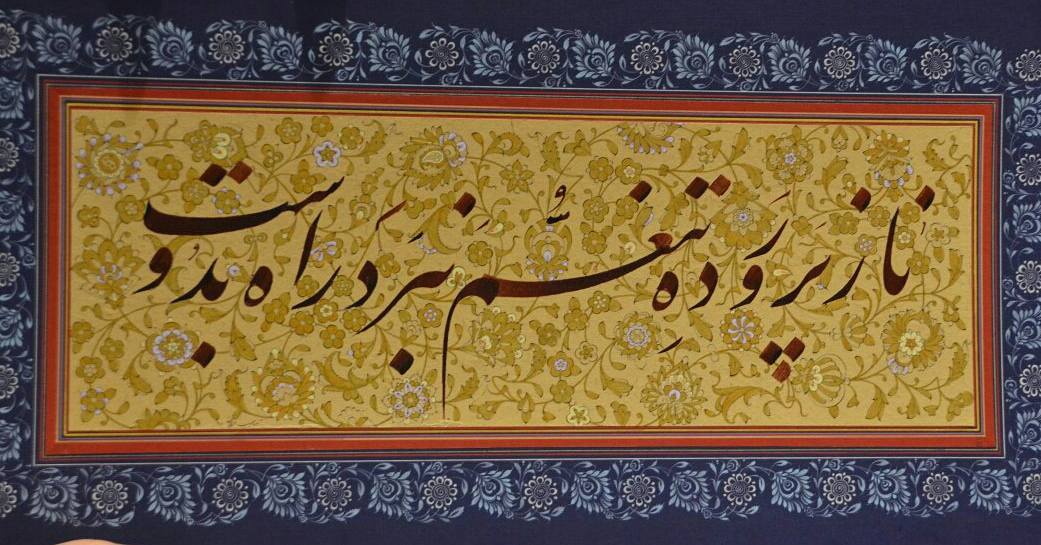 ناز پرورده تنعّم نبرد راه بدوست